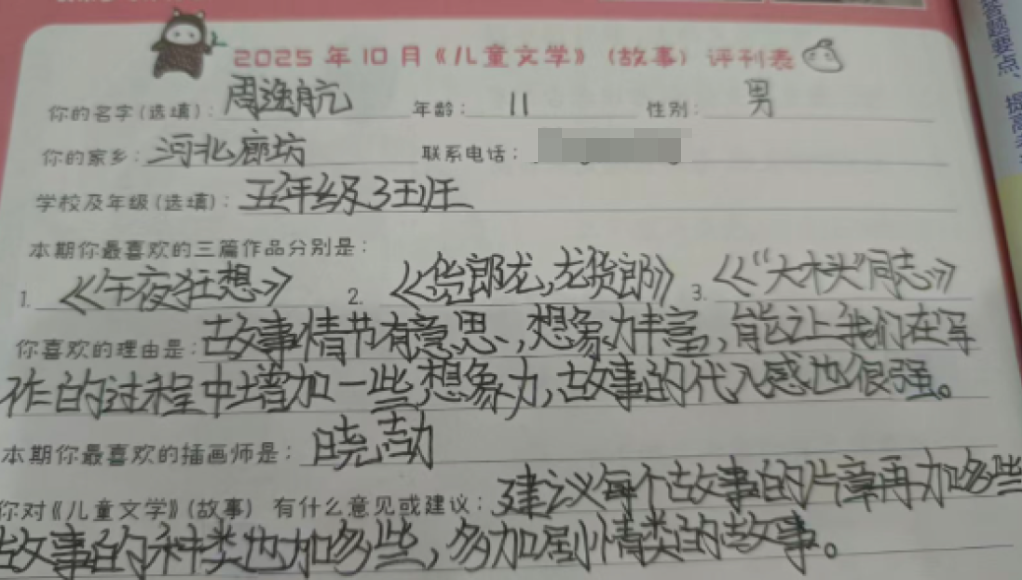 2025年10月《儿童文学》(故事) 评刊表
你的名字(选填): 周逸航 年龄: 11 性别: 男
你的家乡: 河北廊坊 联系电话:
学校及年级(选填): 五年级3班
本期你最喜欢的三篇作品分别是:
1. 《午夜狂想》 2. 《货郎龙,龙货郎》 3. 《“大木头”同志》
你喜欢的理由是: 故事情节有意思,想象力丰富,能让我们在写
作的过程中增加一些想象力,故事的代入感也很强。
本期你最喜欢的插画师是: 晓劼
你对《儿童文学》(故事) 有什么意见或建议: 建议每个故事的片章再加多些
故事的种类也加多些,多加剧情类的故事。
答题要点、提高